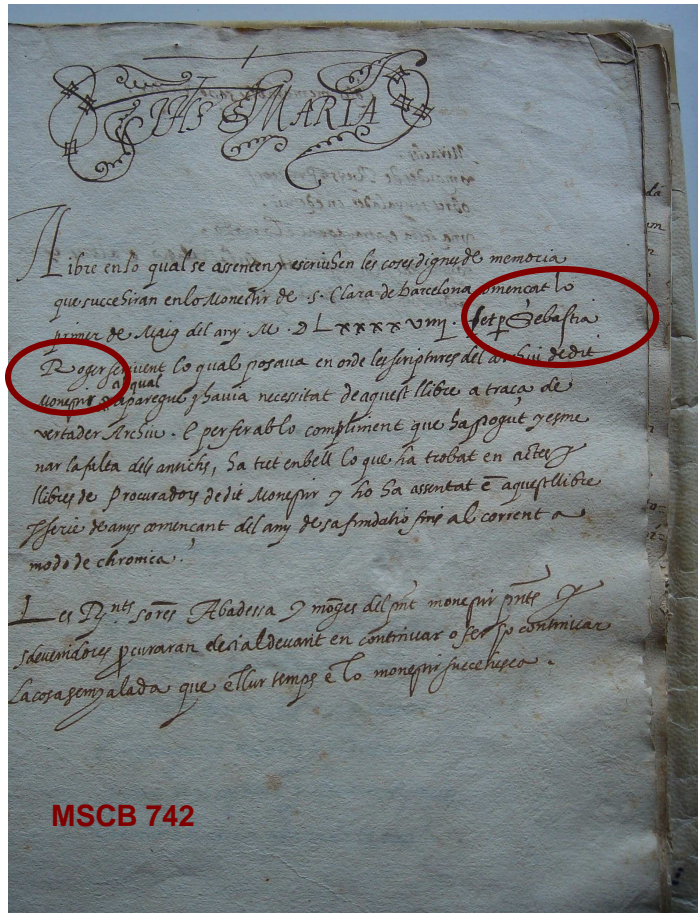 IHS MARIA
Llibre en lo qual se assenten y escriuhen les coses dignes de memoria
que succehiran en lo Monestir de S. Clara de Barcelona comencat lo
primer de Maig del any M. D L xxxx viiij. fet p Sebastia
Roger scrivent lo qual posava en orde les scriptures del archiu de dit
al qual
Monestir aparegue y havia necessitat de aquest llibre a traça de
vertader Archiu. E per fer ab lo compliment que ha pogut y esme
nar la falta dels antichs, ha tret en bell lo que ha trobat en actes y
llibres de Procuradors de dit Monestir y ho ha assentat ē aquest llibre
p serie de anys comencant del any de sa fundatio fins al corrent a
modo de chronica.
Les sores Abadessa y mōges del pnt monestir pnts y
sdevenidores pcuraran de ci al devant en continuar o fer ho continuar
la cosa senyalada que ē llur temps ē lo monestir succehesca.
MSCB 742